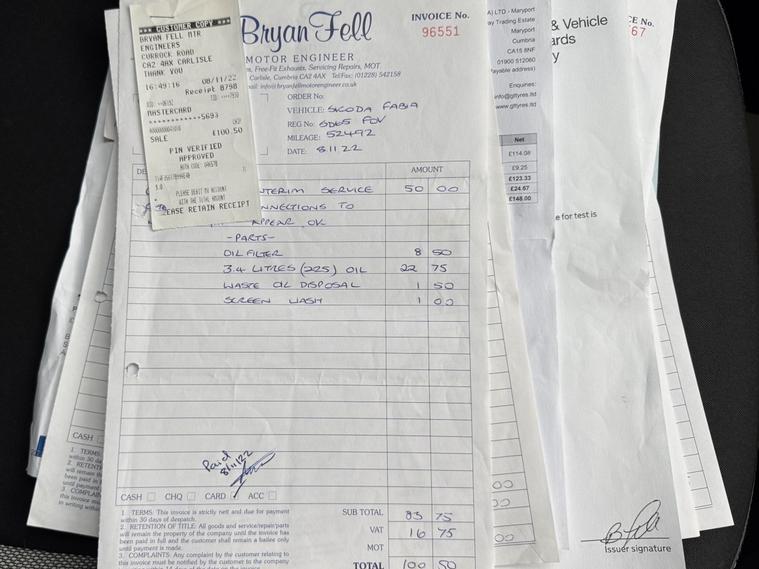 *** CUSTOMER COPY ***
BRYAN FELL MTR
ENGINEERS
CURROCK ROAD
CA2 4AX CARLISLE
THANK YOU
16:49:16 08/11/22
Receipt 8798
MASTERCARD
************5693
SALE £100.50
PIN VERIFIED
APPROVED
PLEASE DEBIT MY ACCOUNT
WITH THE TOTAL AMOUNT
PLEASE RETAIN RECEIPT
Bryan Fell
MOTOR ENGINEER
INVOICE No.
96551
Free-Fit Exhausts, Servicing Repairs, MOT
Carlisle, Cumbria CA2 4AX Tel/Fax: (01228) 542158
info@bryanfellmotorengineer.co.uk
ORDER No:
VEHICLE: SKODA FABIA
REG No:
MILEAGE: 52492
DATE: 8 11 22
AMOUNT
INTERIM SERVICE 50 00
CONNECTIONS TO
APPEAR OK
-PARTS-
OIL FILTER 8 50
3.4 LITRES (225) OIL 22 75
WASTE OIL DISPOSAL 1 50
SCREEN WASH 1 00
Paid
8/11/22
CASH CHQ CARD ACC
1. TERMS: This invoice is strictly nett and due for payment
within 30 days of despatch.
2. RETENTION OF TITLE: All goods and service/repair/parts
will remain the property of the company until the invoice has
been paid in full and the customer shall remain a bailee only
until payment is made.
3. COMPLAINTS: Any complaint by the customer relating to
this invoice must be notified by the customer to the company
SUB TOTAL 83 75
VAT 16 75
MOT
TOTAL 100 50
LTD - Maryport
Trading Estate
Maryport
Cumbria
CA15 8NF
01900 512060
Enquiries:
info@gttyres.ltd
www.gttyres.ltd
Net
£114.08
£9.25
£123.33
£24.67
£148.00
& Vehicle
for test is
Issuer signature
CE No.
67
CASH
1. TERMS